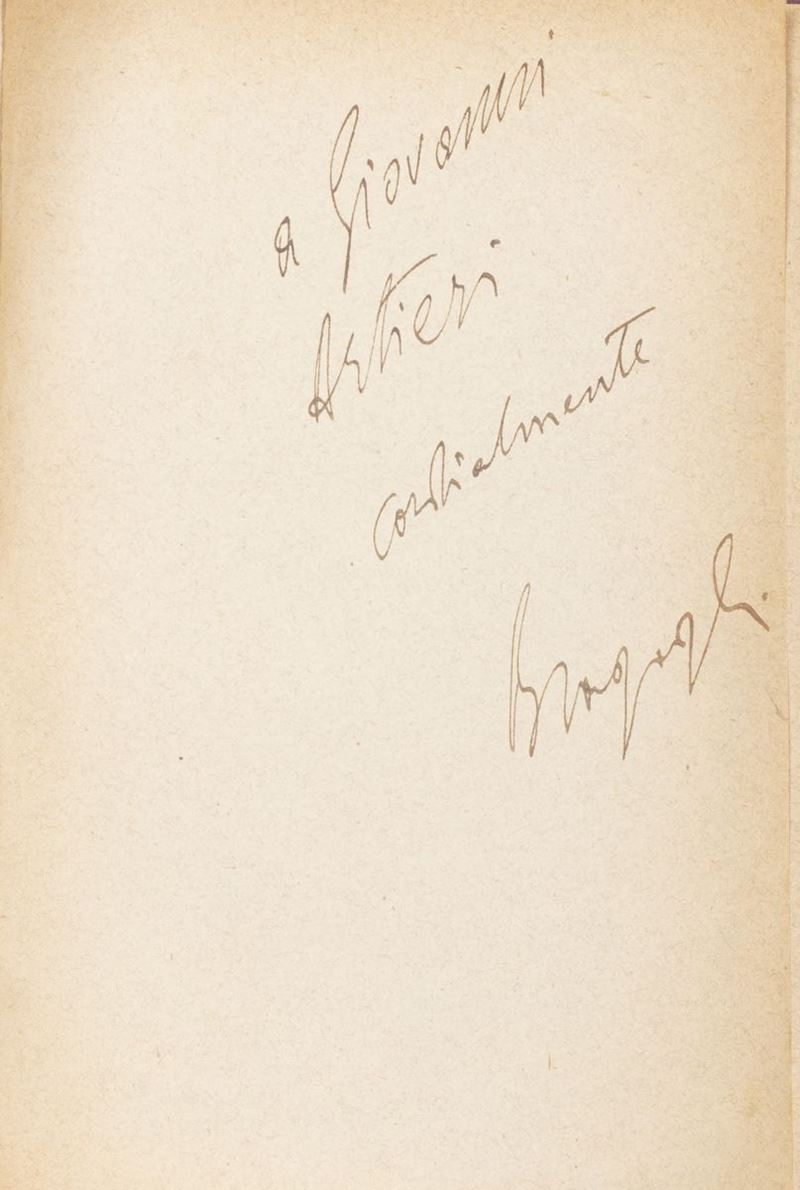 a Giovanni
Artieri
cordialmente
Bragaglia